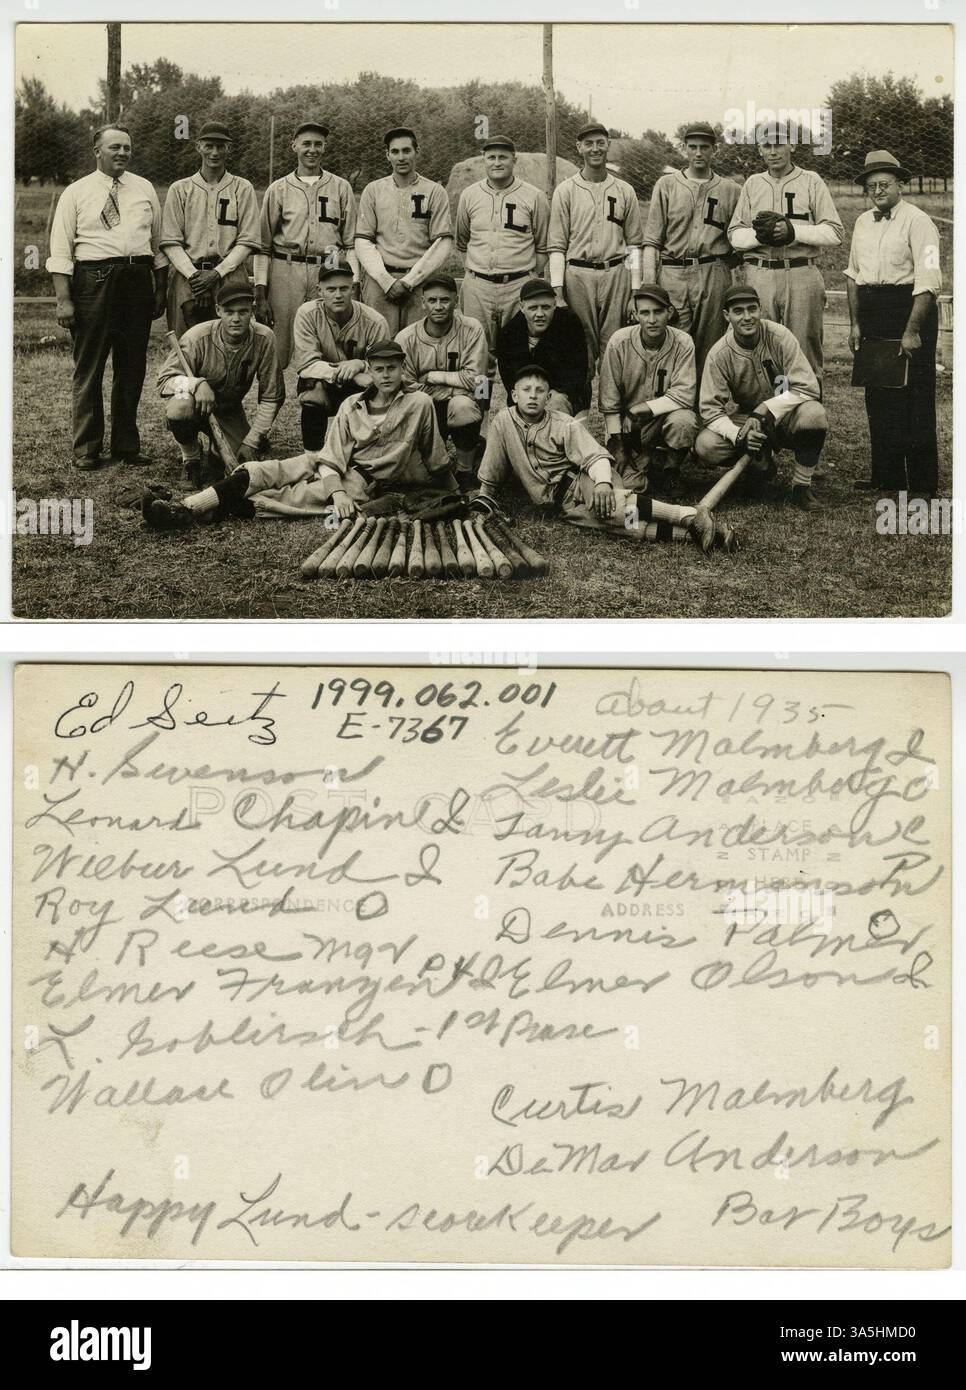 L L L L L L L
L L L L
alamy
Ed Seitz 1999.062.001 about 1935
E-7367
H. Swenson
Leonard Chapin I
Wilbur Lund I
Roy Lund O
H. Reese Mgr
Elmer Franzen P &
L. Goblirsch - 1st Base
Wallace Olin O
Everett Malmberg I
Leslie Malmberg C
Tanny Anderson C
Babe Hermanson P
Dennis Palm O
Elmer Olson I
Curtis Malmberg
DeMar Anderson
Bat Boys
Happy Lund - scorekeeper
POST CARD
CORRESPONDENCE
ADDRESS
PLACE
STAMP
HERE
alamy
Image ID: 3A5HMD0
www.alamy.com